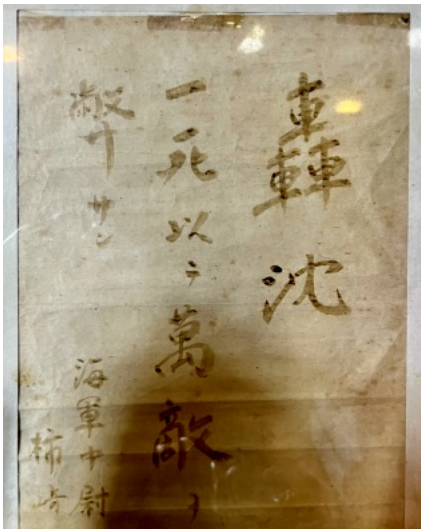 轟沈
一死以テ萬敵ヲ
弊サン
海軍中尉
柿崎